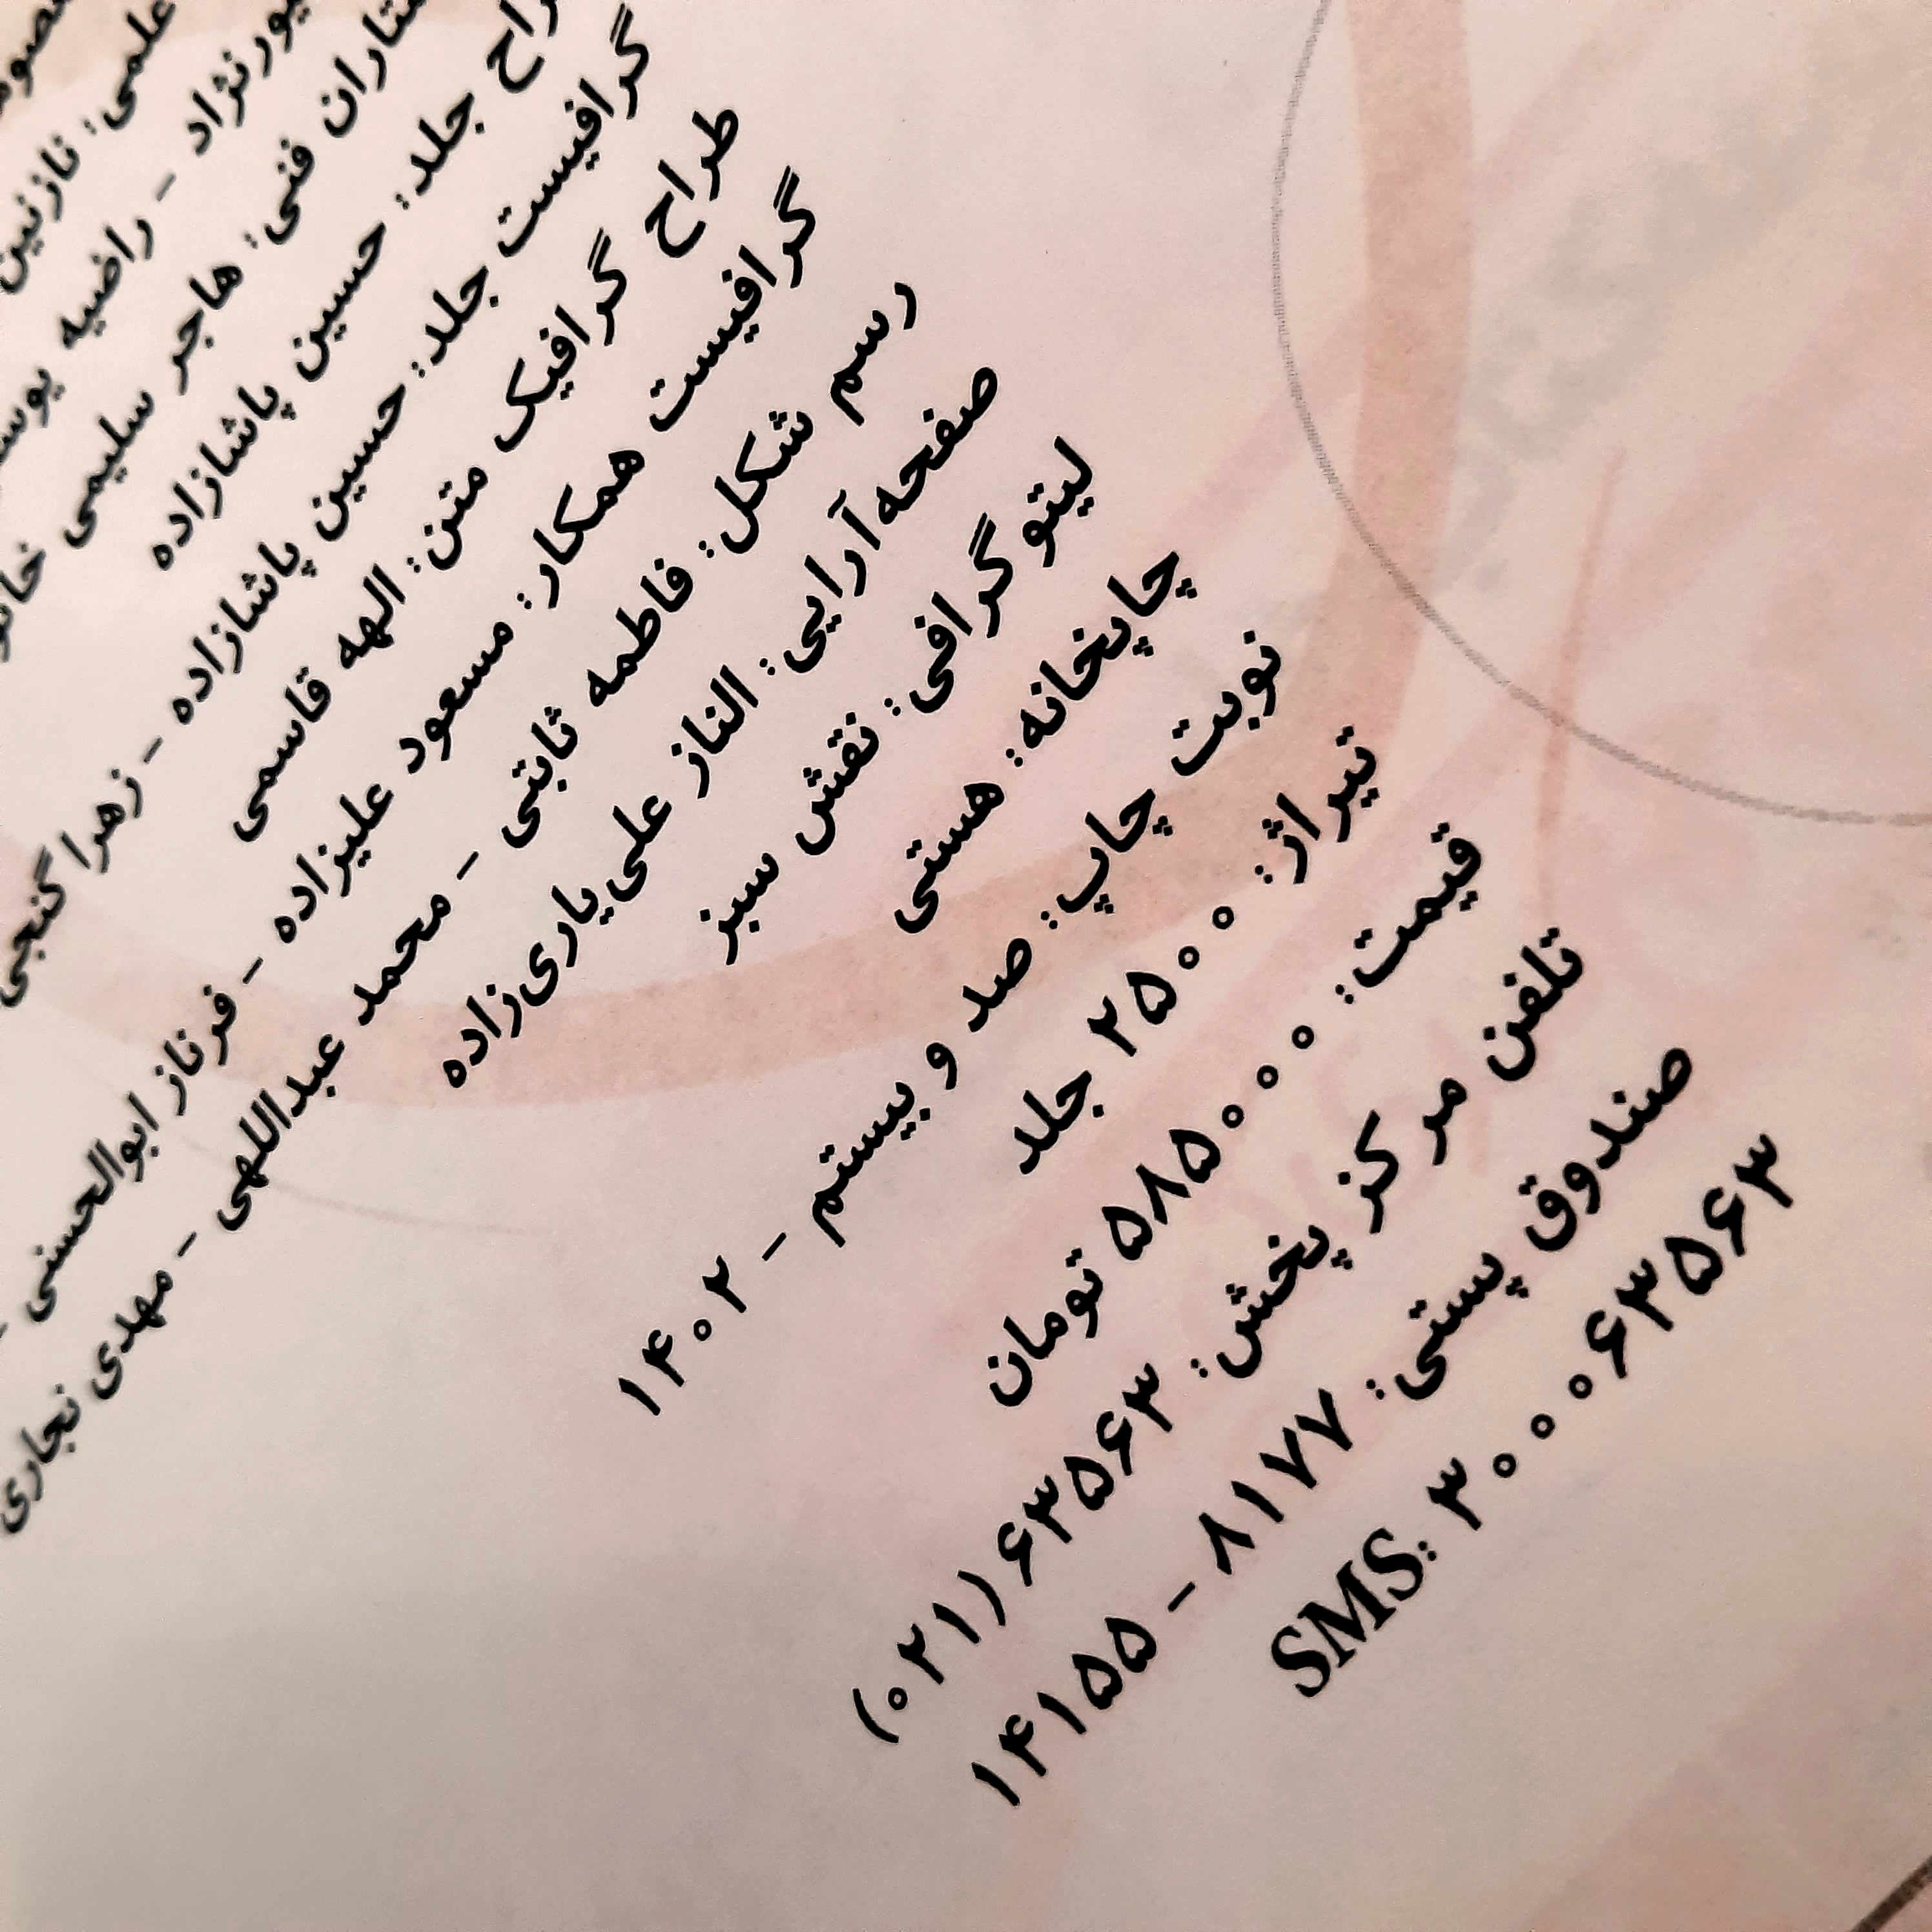 علمی: نازنین
پورنژاد - راضیه
فنی: هاجر سلیمی
جلد: حسین پاشازاده
گرافیست جلد: حسین پاشازاده - زهرا گنجی
طراح گرافیک متن: الهه قاسمی
گرافیست همکار: مسعود علیزاده - فرناز ابوالحسنی -
رسم شکل: فاطمه ثابتی - محمد عبداللهی - مهدی نجاری
صفحه‌آرایی: الناز علی‌یاری‌زاده
لیتوگرافی: نقش سبز
چاپخانه: هستی
نوبت چاپ: صد و بیستم - ۱۴۰۲
تیراژ: ۲۵۰۰ جلد
قیمت: ۵۸۵۰۰۰ تومان
تلفن مرکز پخش: ۶۳۵۶۳(۰۲۱)
صندوق پستی: ۸۱۷۷ - ۱۴۱۵۵
SMS: ۳۰۰۰۶۳۵۶۳